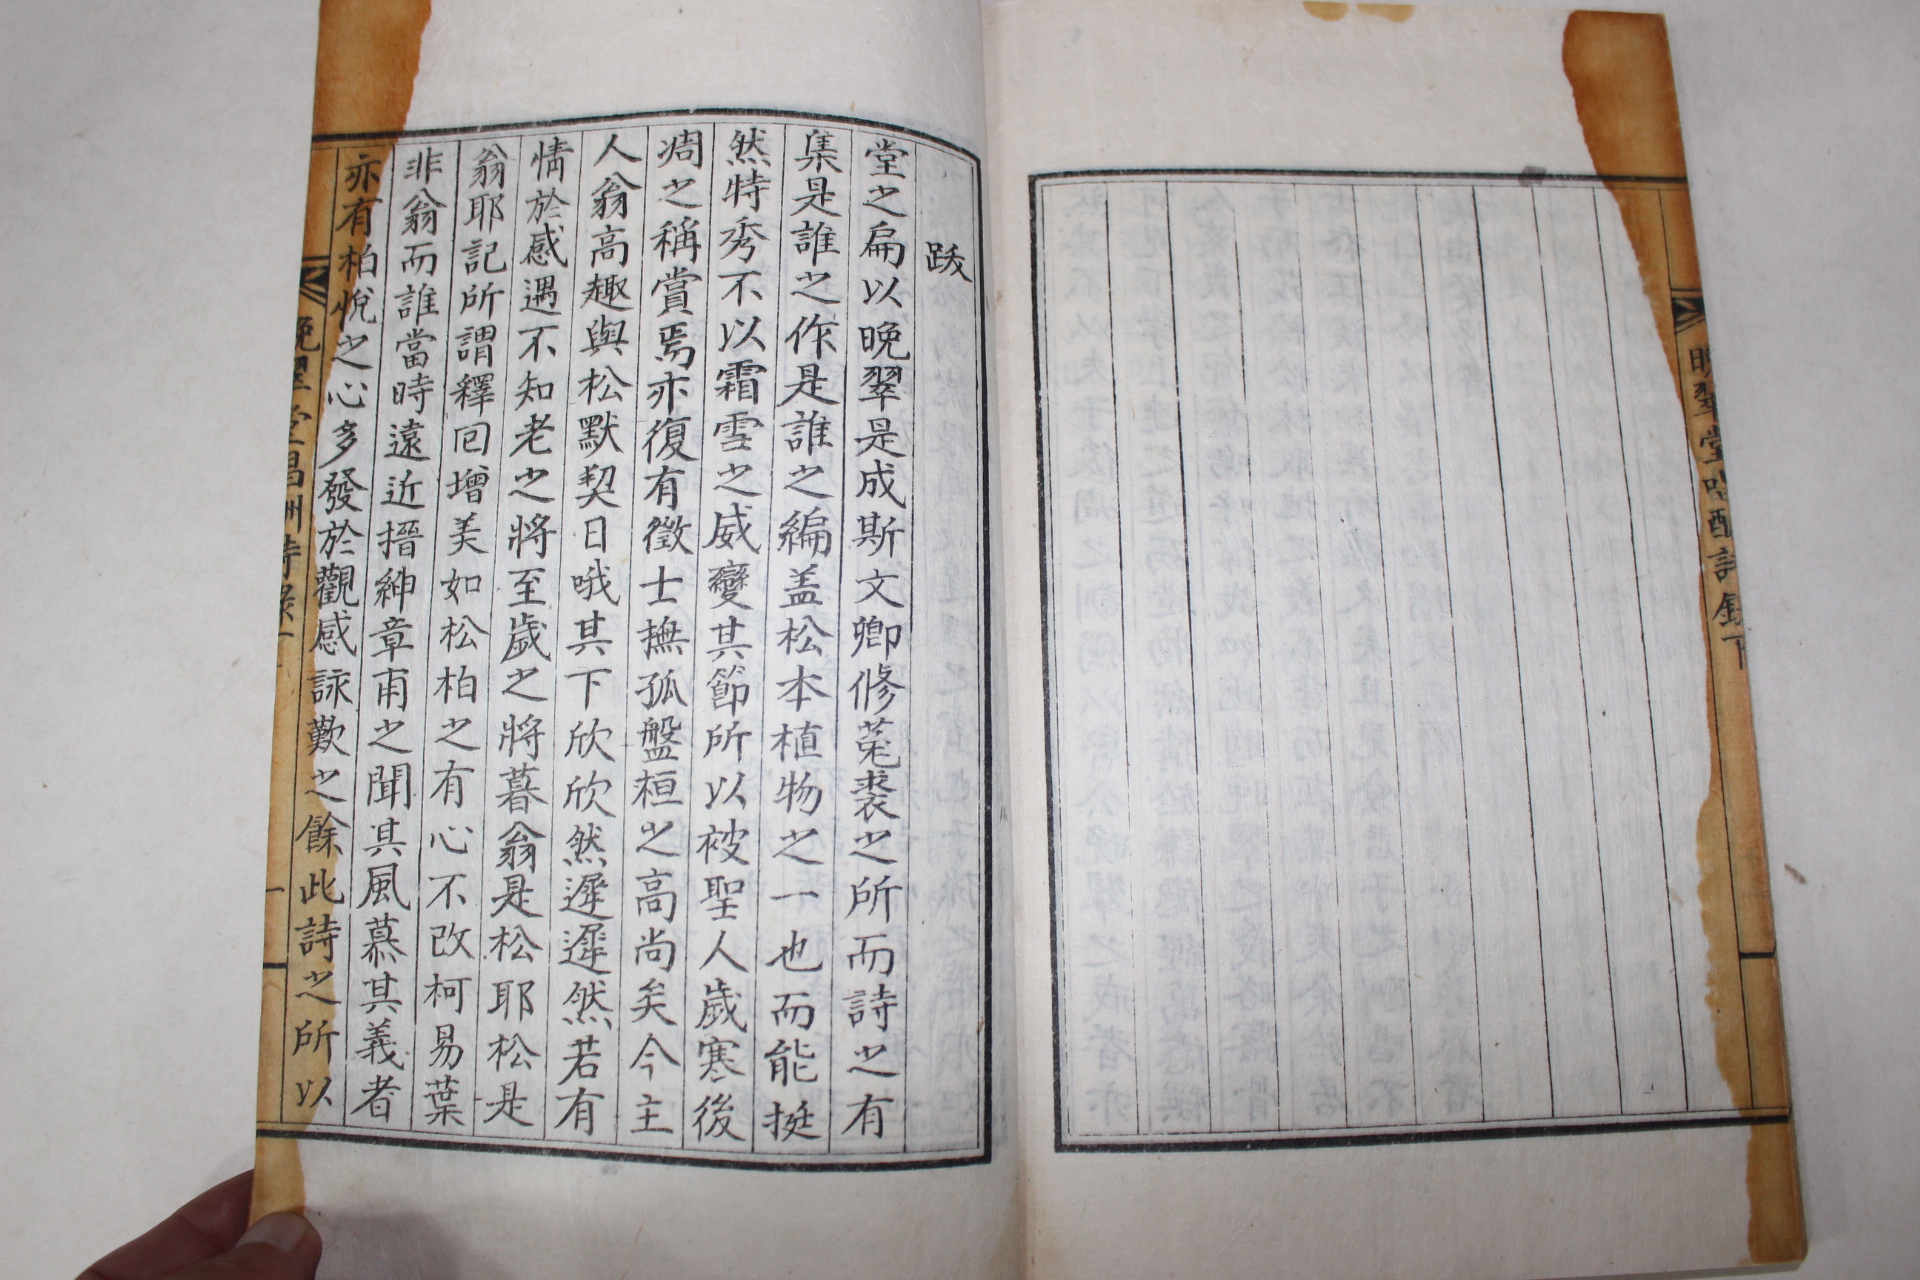 晩翠堂唱酬詩錄下
跋
堂之扁以晩翠是成斯文卿修菟裘之所而詩之有
集是誰之作是誰之編盖松本植物之一也而能挺
然特秀不以霜雪之威變其節所以被聖人歲寒後
凋之稱賞焉亦復有徵士撫孤盤桓之高尚矣今主
人翁高趣與松默契日哦其下欣欣然遲遲然若有
情於感遇不知老之將至歲之將暮翁是松耶松是
翁耶記所謂釋回增美如松柏之有心不改柯易葉
非翁而誰當時遠近搢紳章甫之聞其風慕其義者
亦有柏悅之心多發於觀感詠歎之餘此詩之所以
晩翠堂唱酬詩錄